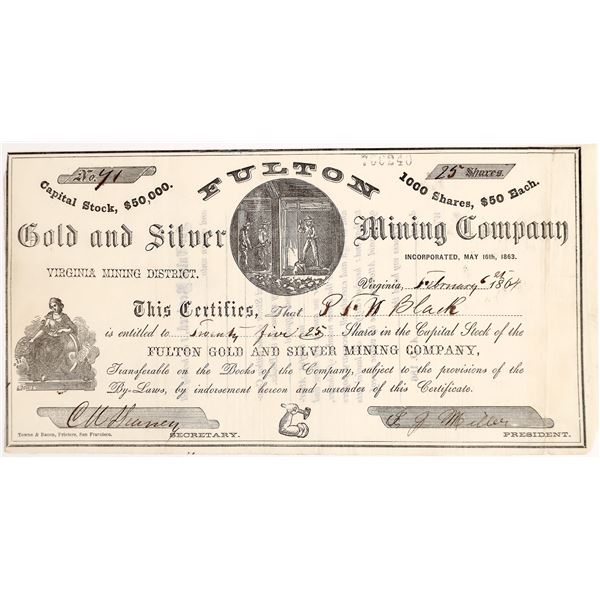 No. 91
700240
25 Shares.
Capital Stock, $50,000.
FULTON
1000 Shares, $50 Each.
Gold and Silver Mining Company
INCORPORATED, MAY 16th, 1863.
VIRGINIA MINING DISTRICT.
Virginia, February 1864
This Certifies, That Black
is entitled to Twenty five 25 Shares in the Capital Stock of the
FULTON GOLD AND SILVER MINING COMPANY,
Transferable on the Books of the Company, subject to the provisions of the
By-Laws, by indorsement hereon and surrender of this Certificate.
Towne & Bacon, Printers, San Francisco.
SECRETARY.
PRESIDENT.